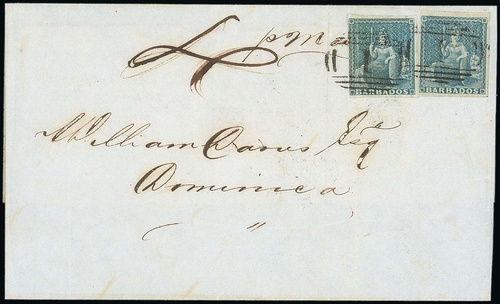 BARBADOS BARBADOS
William Davis Esq
Dominica
"